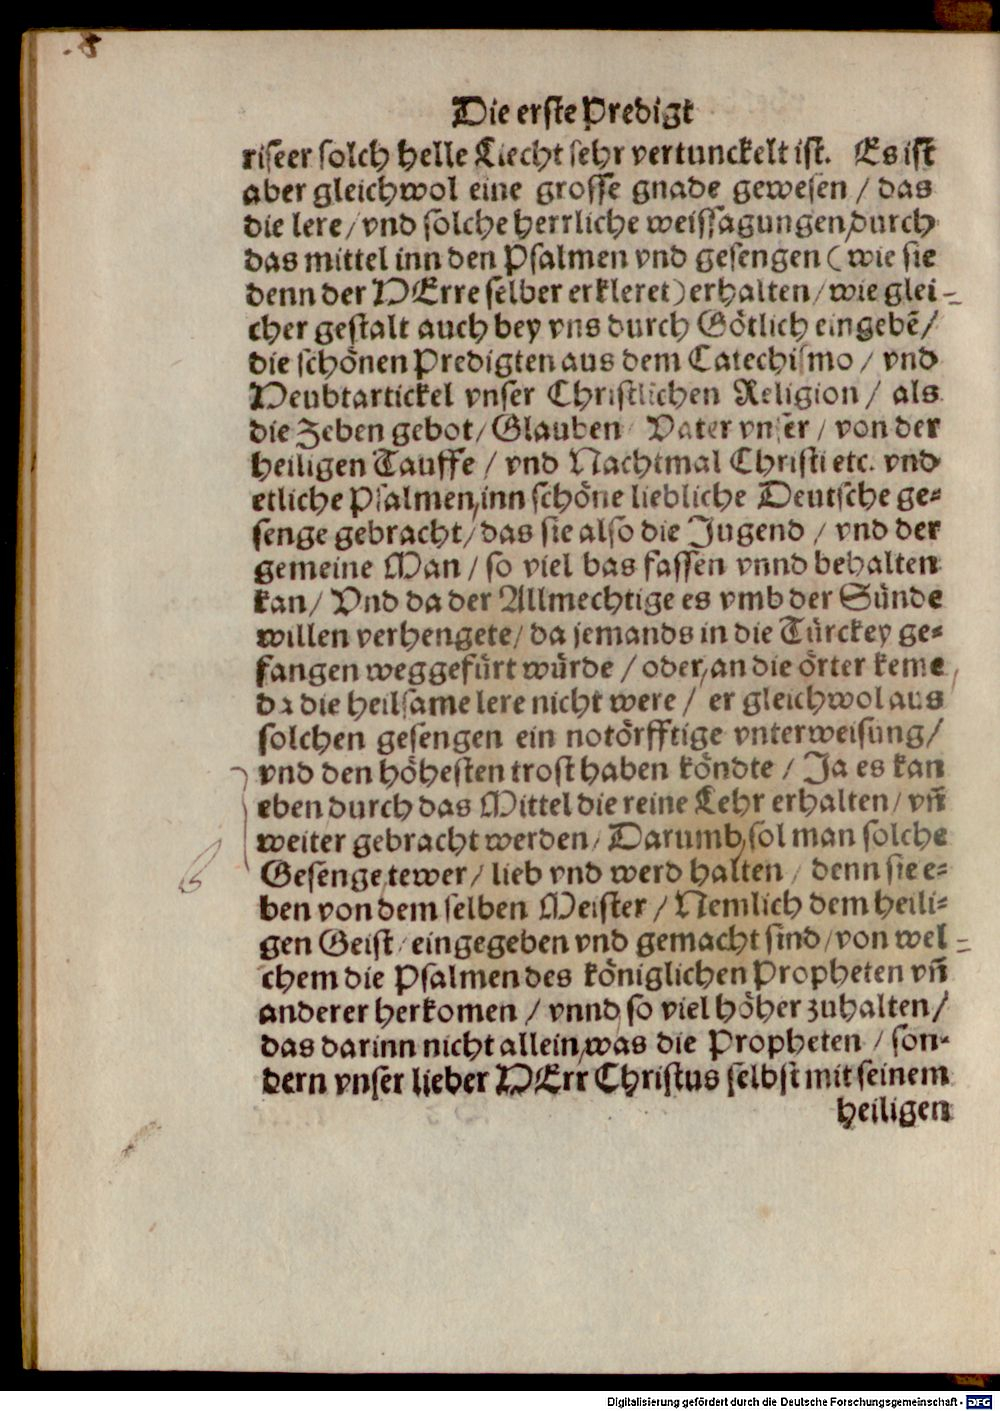 Die erste Predigt
riseer solch helle Liecht sehr vertunckelt ist. Es ist
aber gleichwol eine grosse gnade gewesen / das
die lere / vnd solche herrliche weissagungen, durch
das mittel inn den Psalmen vnd gesengen (wie sie
denn der HErre selber erkleret) erhalten / wie glei-
cher gestalt auch bey vns durch Götlich eingebē /
die schönen Predigten aus dem Catechismo / vnd
Heubtartickel vnser Christlichen Religion / als
die Zehen gebot / Glauben / Vater vnser / von der
heiligen Tauffe / vnd Nachtmal Christi etc. vnd
etliche Psalmen, inn schöne liebliche Deutsche ge-
senge gebracht / das sie also die Jugend / vnd der
gemeine Man / so viel bas fassen vnnd behalten
kan / Vnd da der Allmechtige es vmb der Sünde
willen verhengete / da jemands in die Türckey ge-
fangen weggefürt würde / oder, an die örter keme,
da die heilsame lere nicht were / er gleichwol aus
solchen gesengen ein notörfftige vnterweisung /
vnd den höhesten trost haben köndte / Ja es kan
eben durch das Mittel die reine Lehr erhalten / vñ
weiter gebracht werden / Darumb, sol man solche
Gesenge, tewer / lieb vnd werd halten / denn sie e-
ben von dem selben Meister / Nemlich dem heili-
gen Geist / eingegeben vnd gemacht sind / von wel-
chem die Psalmen des königlichen Propheten vñ
anderer herkomen / vnnd so viel höher zuhalten /
das darinn nicht allein, was die Propheten / son-
dern vnser lieber HErr Christus selbst mit seinem
heiligen
Digitalisierung gefördert durch die Deutsche Forschungsgemeinschaft - DFG